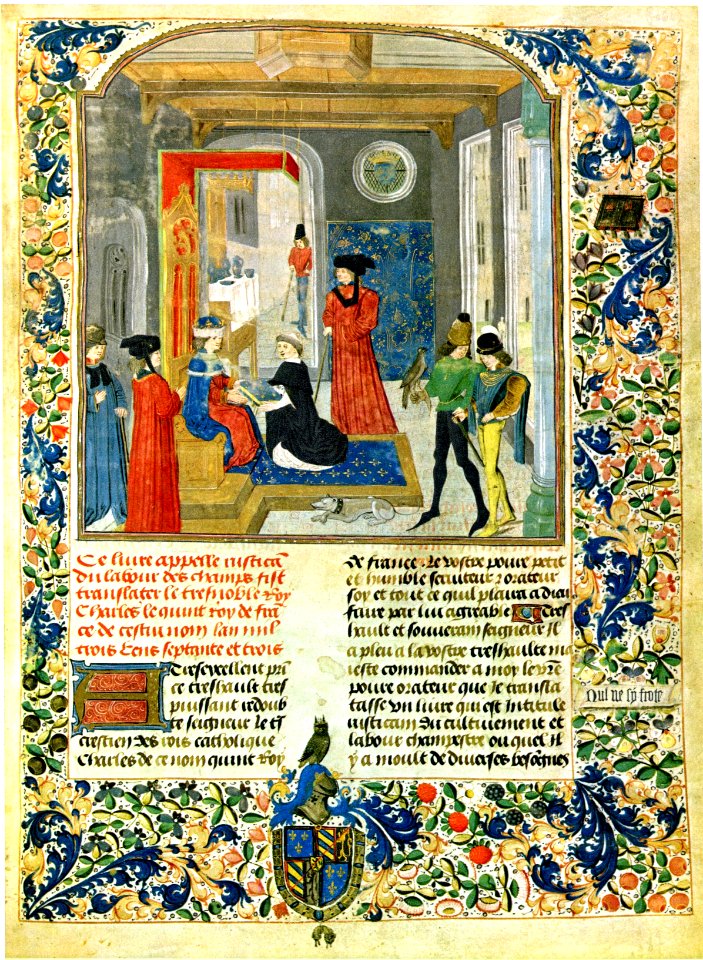 Ce livre appelle rustican
du labour des champs fist
translater le tresnoble Roy
Charles le quint roy de fran
ce de cestui nom lan mil
trois Cens septante et trois
A Tresexellent prin
ce treshault tres
puissant redoub
te seigneur le tres
crestien des rois catholique
Charles de ce nom quint Roy
de france. Le vostre poure petit
et humble serviteur orateur
soy et tout ce quil plaira a dieu
faire par lui agreable Tres
hault et souverain seigneur Il
a pleu a la vostre treshaulte ma
ieste commander a moy le vostre
poure orateur que je transla
tasse un livre qui est intitule
rusticam du cultivement et
labour champestre ou quel il
y a moult de diverses besognes
Nul ne sy frote